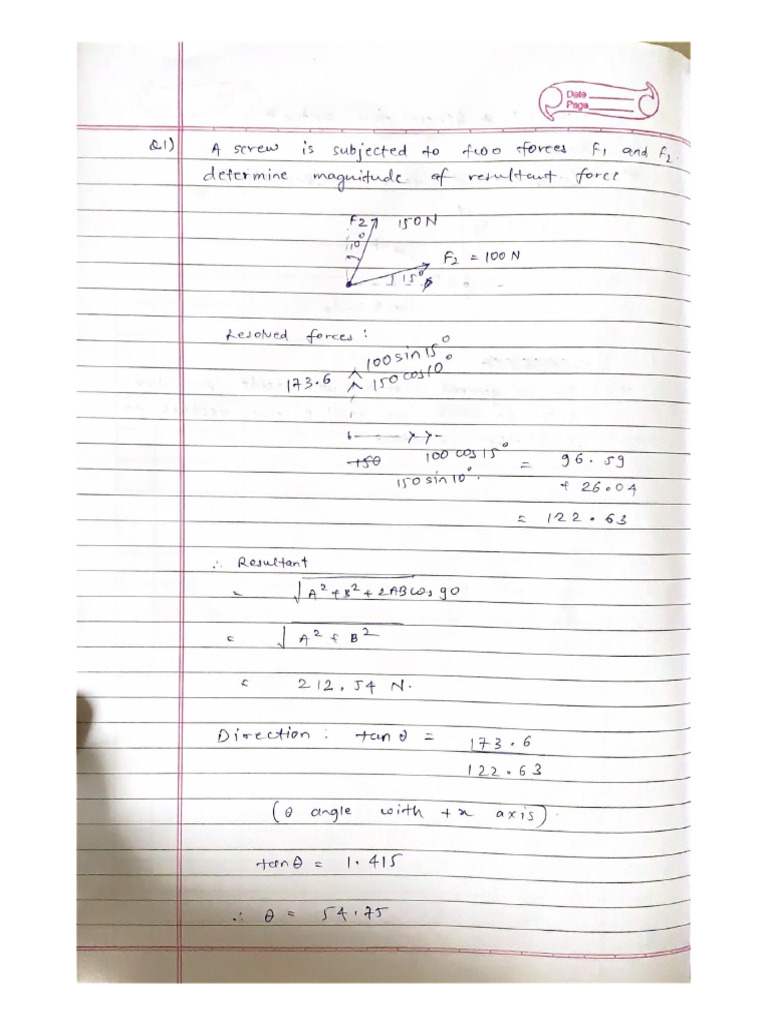 Date
Page
Q1) A screw is subjected to two forces F1 and F2.
determine magnitude of resultant force
F2 150N
10°
F2 = 100 N
15°
Resolved forces :
100 sin 15°
173.6 150 cos 10°
150 100 cos 15° = 96.59
150 sin 10°. + 26.04
= 122.63
∴ Resultant
= √A² + B² + 2AB cos 90
= √A² + B²
= 212.54 N.
Direction : tan θ = 173.6
122.63
(θ angle with +x axis).
tan θ = 1.415
∴ θ = 54.75